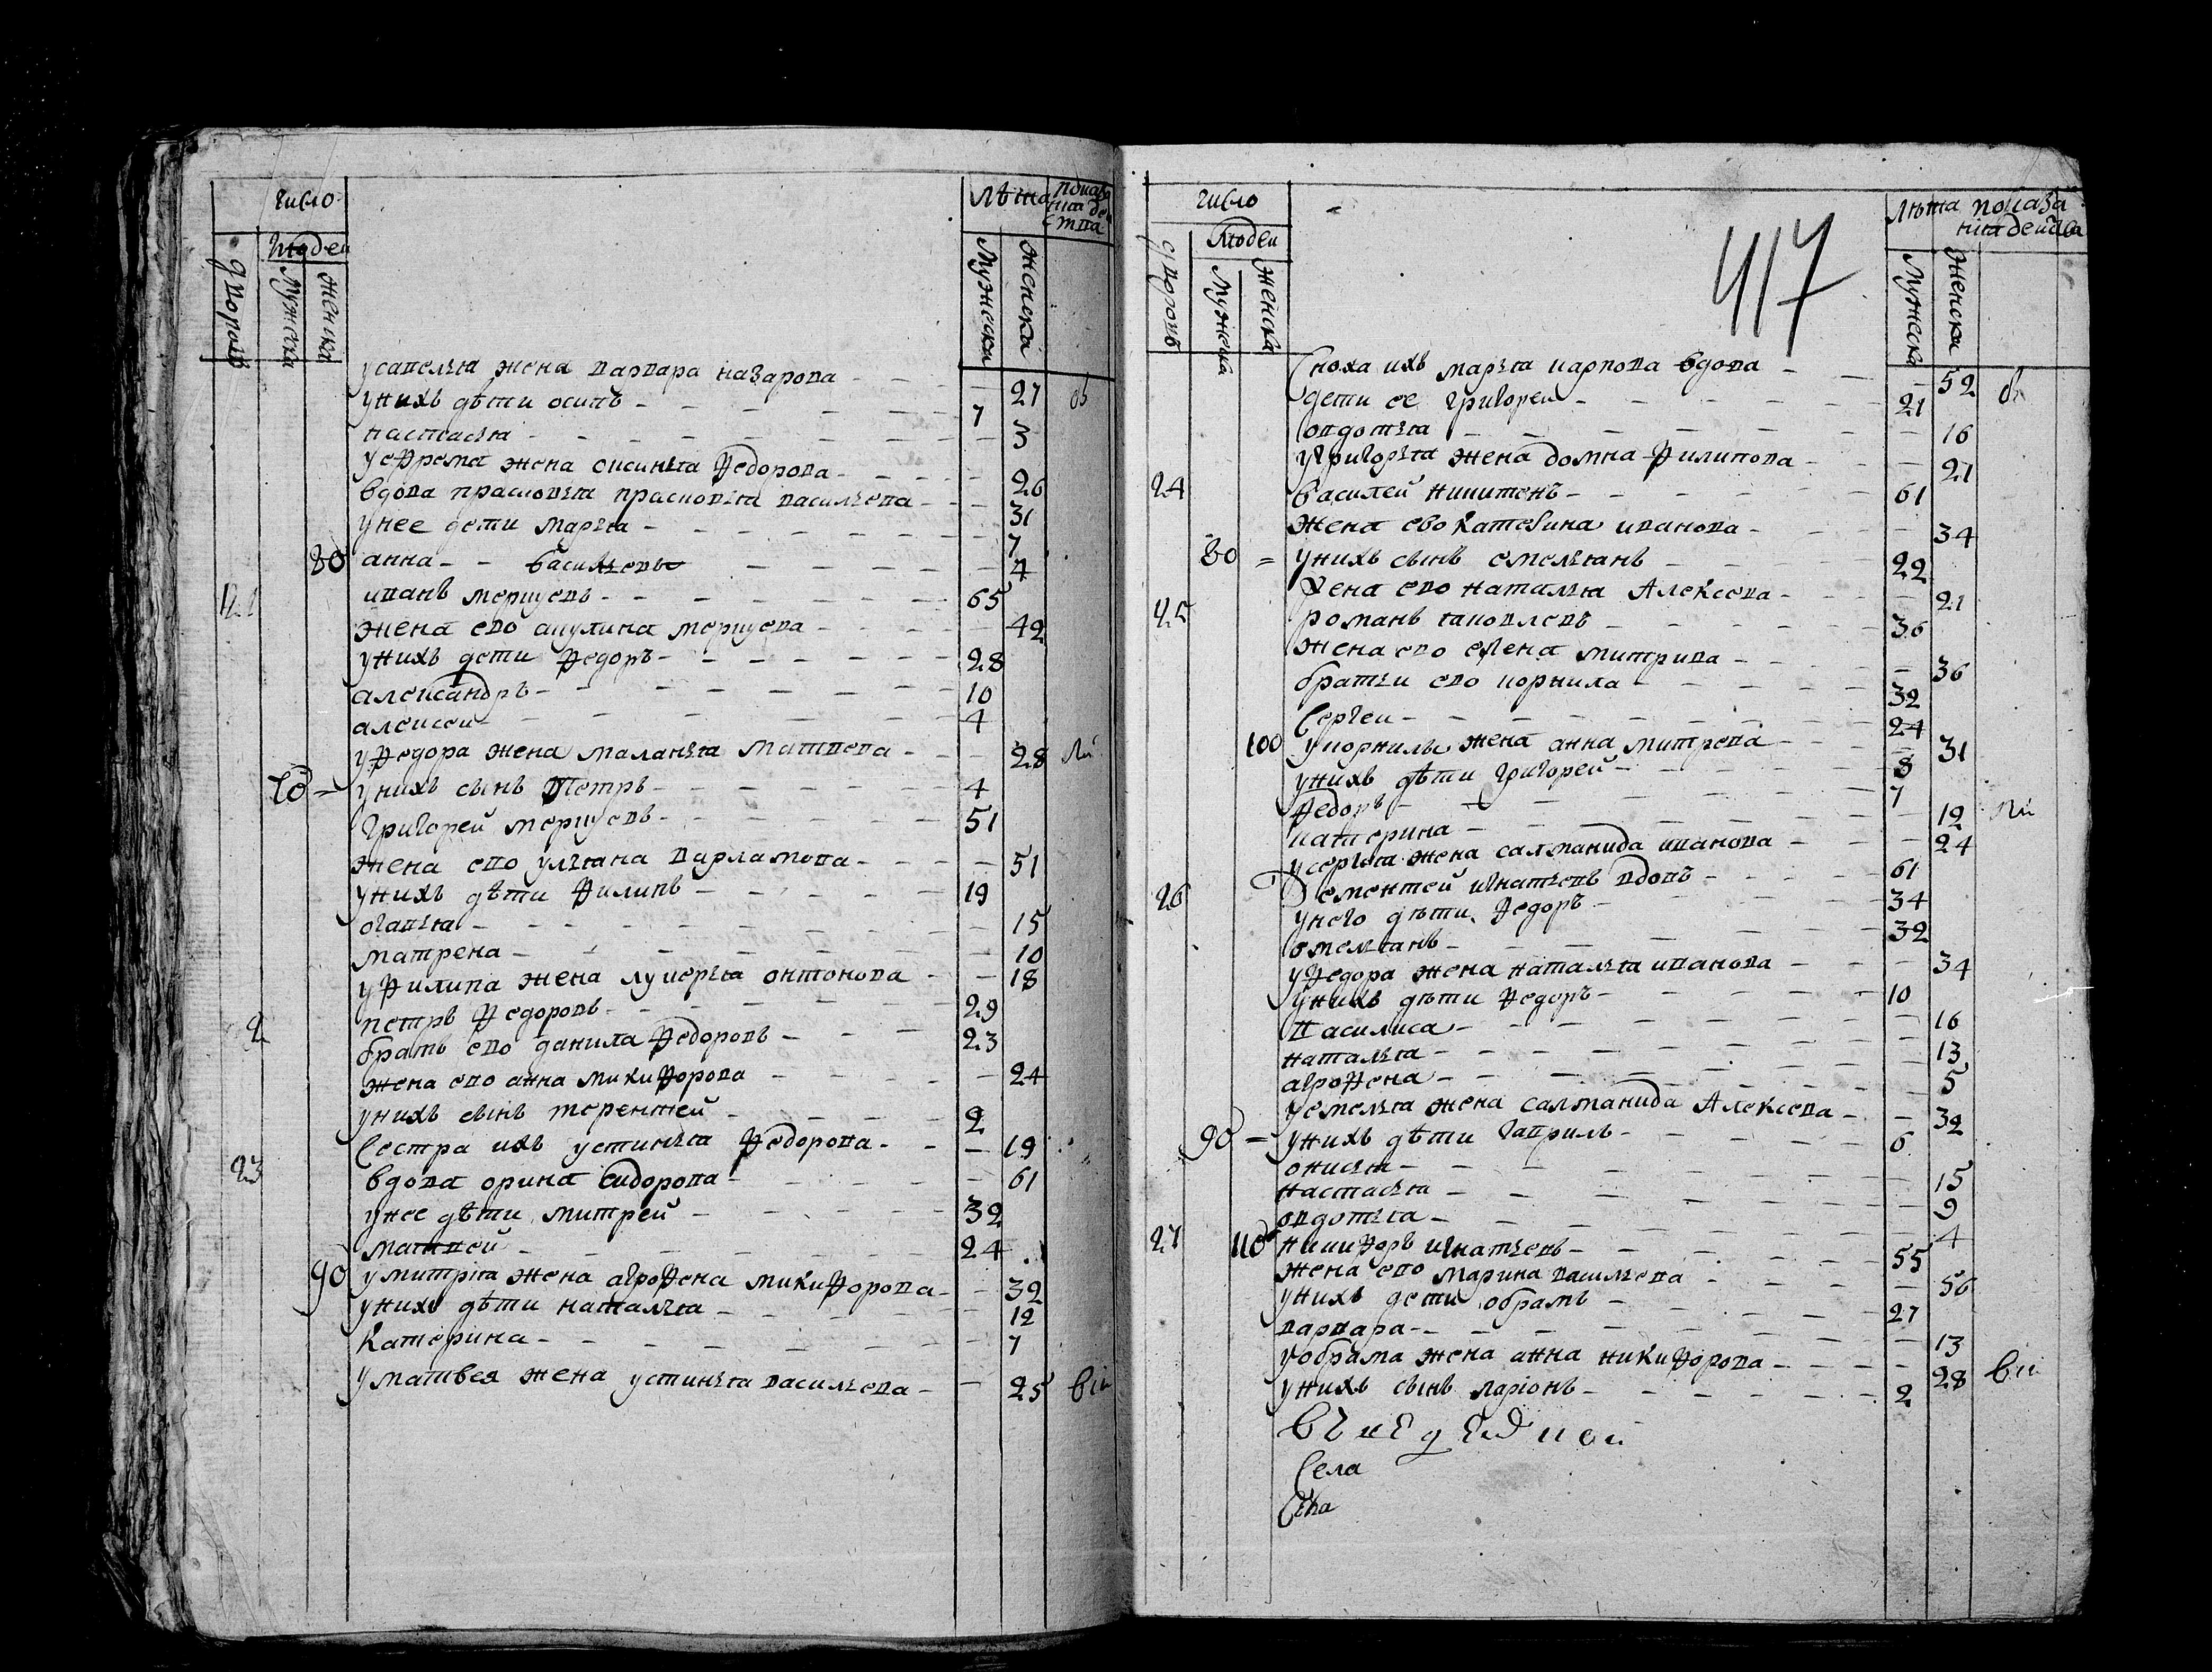 число
людеи
дворовъ
мужеска
женска
лѣта
мужеска
женска
показа
ния дей
ства
усавелья жена варвара назарова - - - - 27 об
унихъ дѣти осипъ - - 7
настасья - - 3
уефрема жена оксинья Федорова - - 26
вдова прасковья прасковья васильева - - 31
унее дети марья - - 7
80 анна - - васильевы - - 4
21 иванъ мершуевъ - - 65
жена ево акулина мершуева - - 42
унихъ дети Федоръ - - 28
александръ - - 10
алексеи - - 4
уФедора жена маланья матвеева - - 28
унихъ сынъ Петръ - - 4
григорей мершуевъ - - 51
жена ево ульяна варламова - - 51
унихъ дѣти Филипъ - - 19
огапья - - 15
матрена - - 10
уФилипа жена лукерья онтонова - - 18
2 петръ Федоровъ - - 29
братъ ево данила Федоровъ - - 23
жена ево анна микиФорова - - 24
унихъ сынъ терентей - - 2
сестра ихъ устинья Федорова - - 19
23 вдова орина сидорова - - 61
унее дѣти митрей - - 32
матвей - - 24
90 умитрія жена агроФена микиФорова - - 32
унихъ дѣти наталья - - 12
катерина - - 7
уматвея жена устинья васильева - - 25
число
людеи
дворовъ
мужеска
женска
417
лѣта
мужеска
женска
показа
ния действа
сноха ихъ марья карпова вдова - - 52
дети ее григореи - - 21
овдотья - - 16
угригорья жена домна Филипова - - 21
24 василей никитенъ - - 61
жена ево катерина иванова - - 34
80 = унихъ сынъ емельянъ - - 22
жена ево наталья Алексева - - 21
25 романъ яковлевъ - - 36
жена ево елена митрива - - 36
братьи ево корнила - - 32
сергеи - - 24
100 укорнилы жена анна митрева - - 31
унихъ дѣти григорей - - 8
Федоръ - - 7
катерина - - 12
усергья жена салманида иванова - - 24
26 дементей игнатьевъ вдовъ - - 61
унего дѣти Федоръ - - 34
омельянъ - - 32
уФедора жена наталья иванова - - 34
унихъ дѣти Федоръ - - 10
василиса - - 16
наталья - - 13
агроФена - - 5
уемелья жена салманида Алексева - - 32
90 = унихъ дѣти гаврилъ - - 6
онисья - - 15
настасья - - 9
овдотья - - 4
27 110 никиФоръ игнатьевъ - - 55
жена ево марина васильева - - 56
унихъ дети обрамъ - - 27
варвара - - 13
уобрама жена анна никиФорова - - 28
унихъ сынъ ларіонъ - - 2
Села